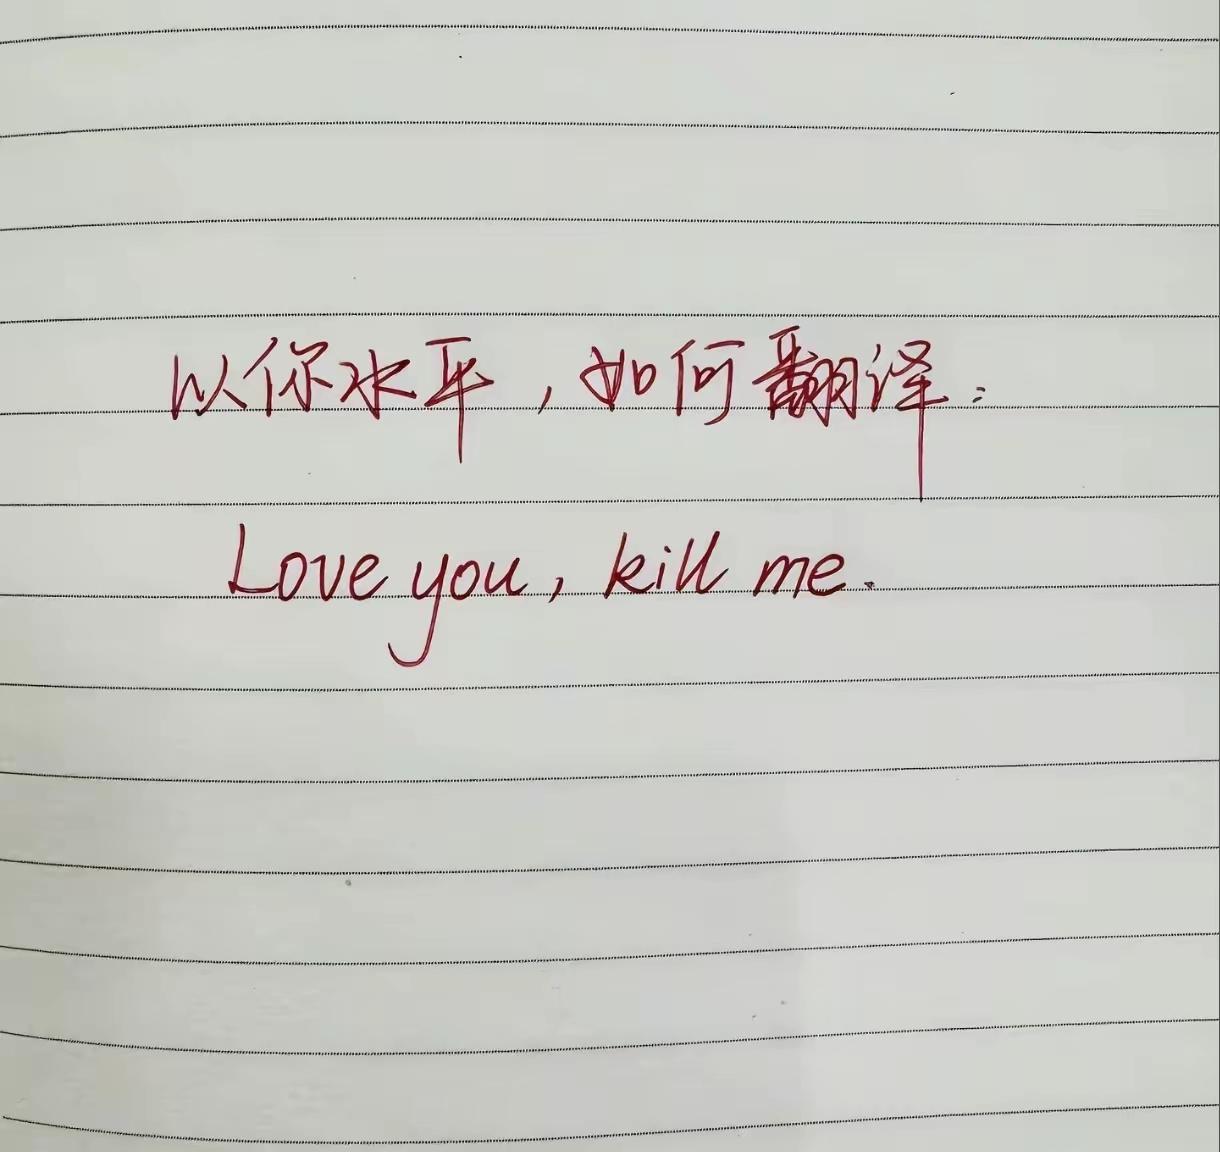 以你水平，如何翻译：
Love you, kill me.